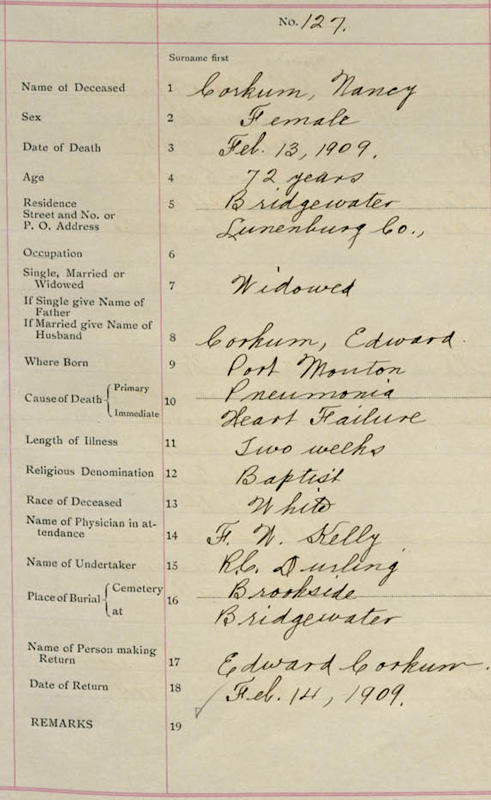 No. 127.
Surname first
Name of Deceased 1 Corkum, Nancy
Sex 2 Female
Date of Death 3 Feb. 13, 1909.
Age 4 72 years
Residence 5 Bridgewater
Street and No. or
P. O. Address Lunenburg Co.,
Occupation 6
Single, Married or
Widowed 7 Widowed
If Single give Name of
Father
If Married give Name of
Husband 8 Corkum, Edward.
Where Born 9 Port Mouton
Cause of Death Primary 10 Pneumonia
Immediate Heart Failure
Length of Illness 11 Two weeks
Religious Denomination 12 Baptist
Race of Deceased 13 White
Name of Physician in at-
tendance 14 F. W. Kelly
Name of Undertaker 15 R.C. Durling
Place of Burial Cemetery 16 Brookside
at Bridgewater
Name of Person making
Return 17 Edward Corkum.
Date of Return 18 Feb. 14, 1909.
REMARKS 19